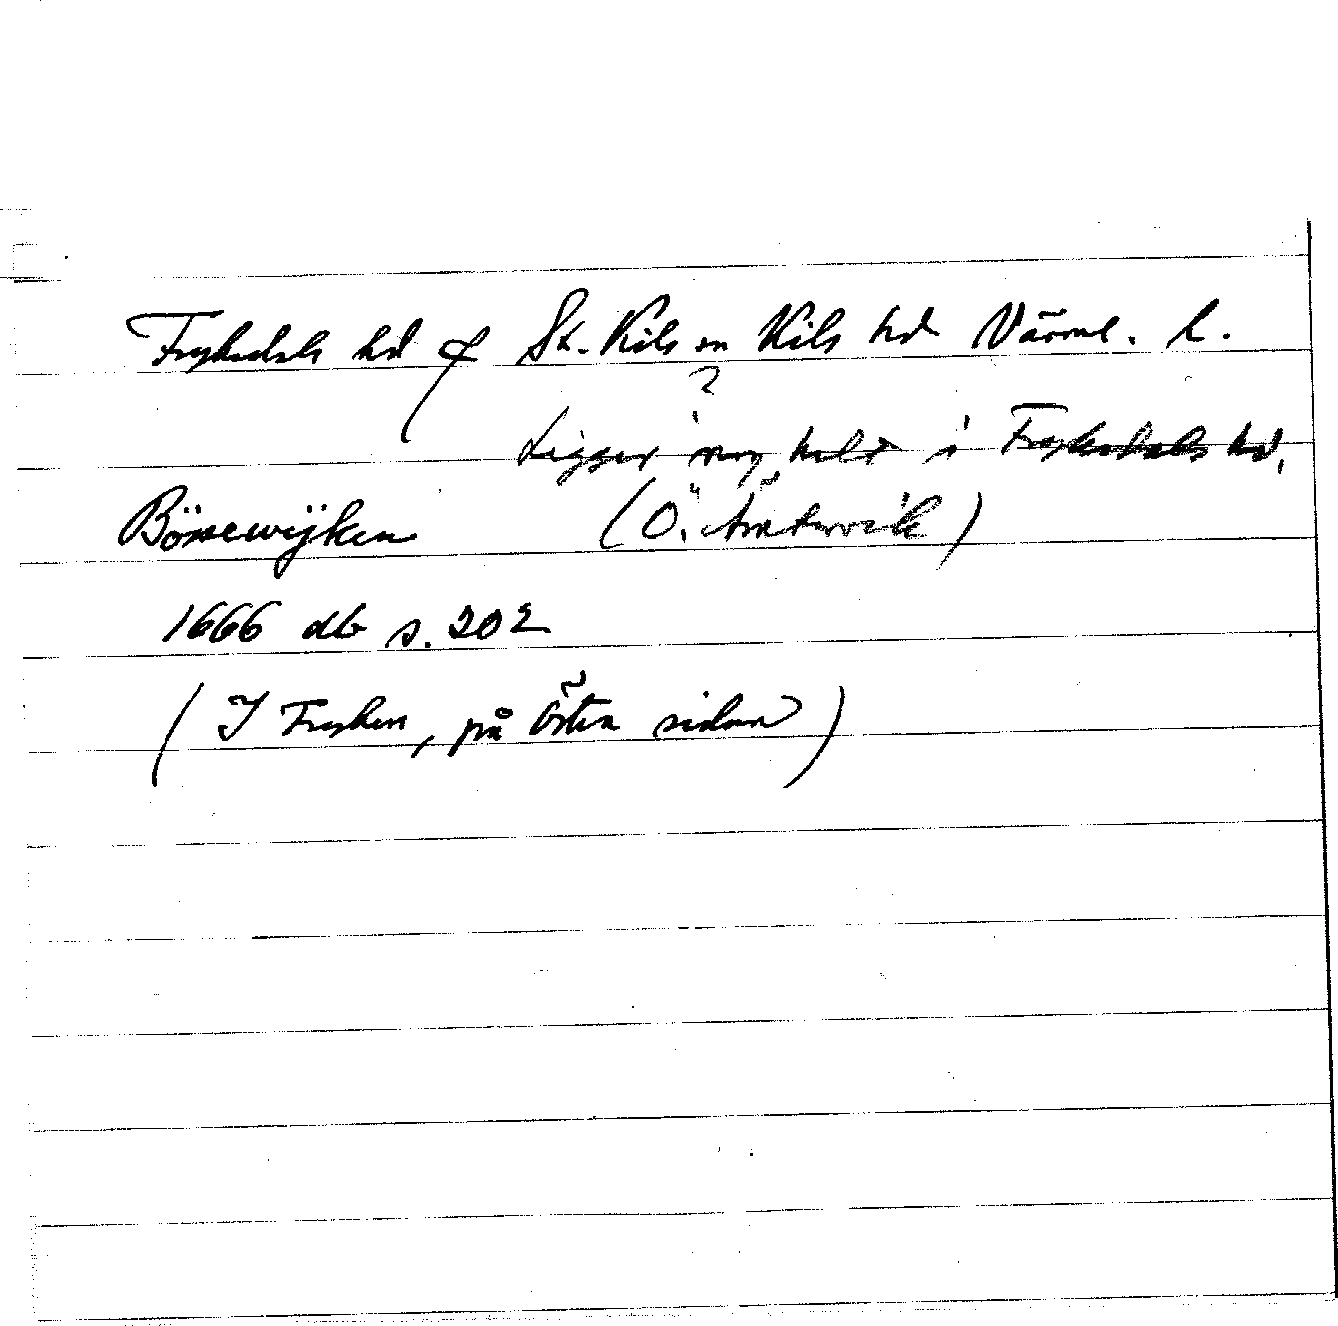 Fryksdals hd & St. Kils sn Kils hd Värml. l.
?
Ligger nog helt i Fryksdals hd.
Bössewijken (Ö. Ämtervik)
1666 db s. 202
(I Fryken, på Östra sidan)